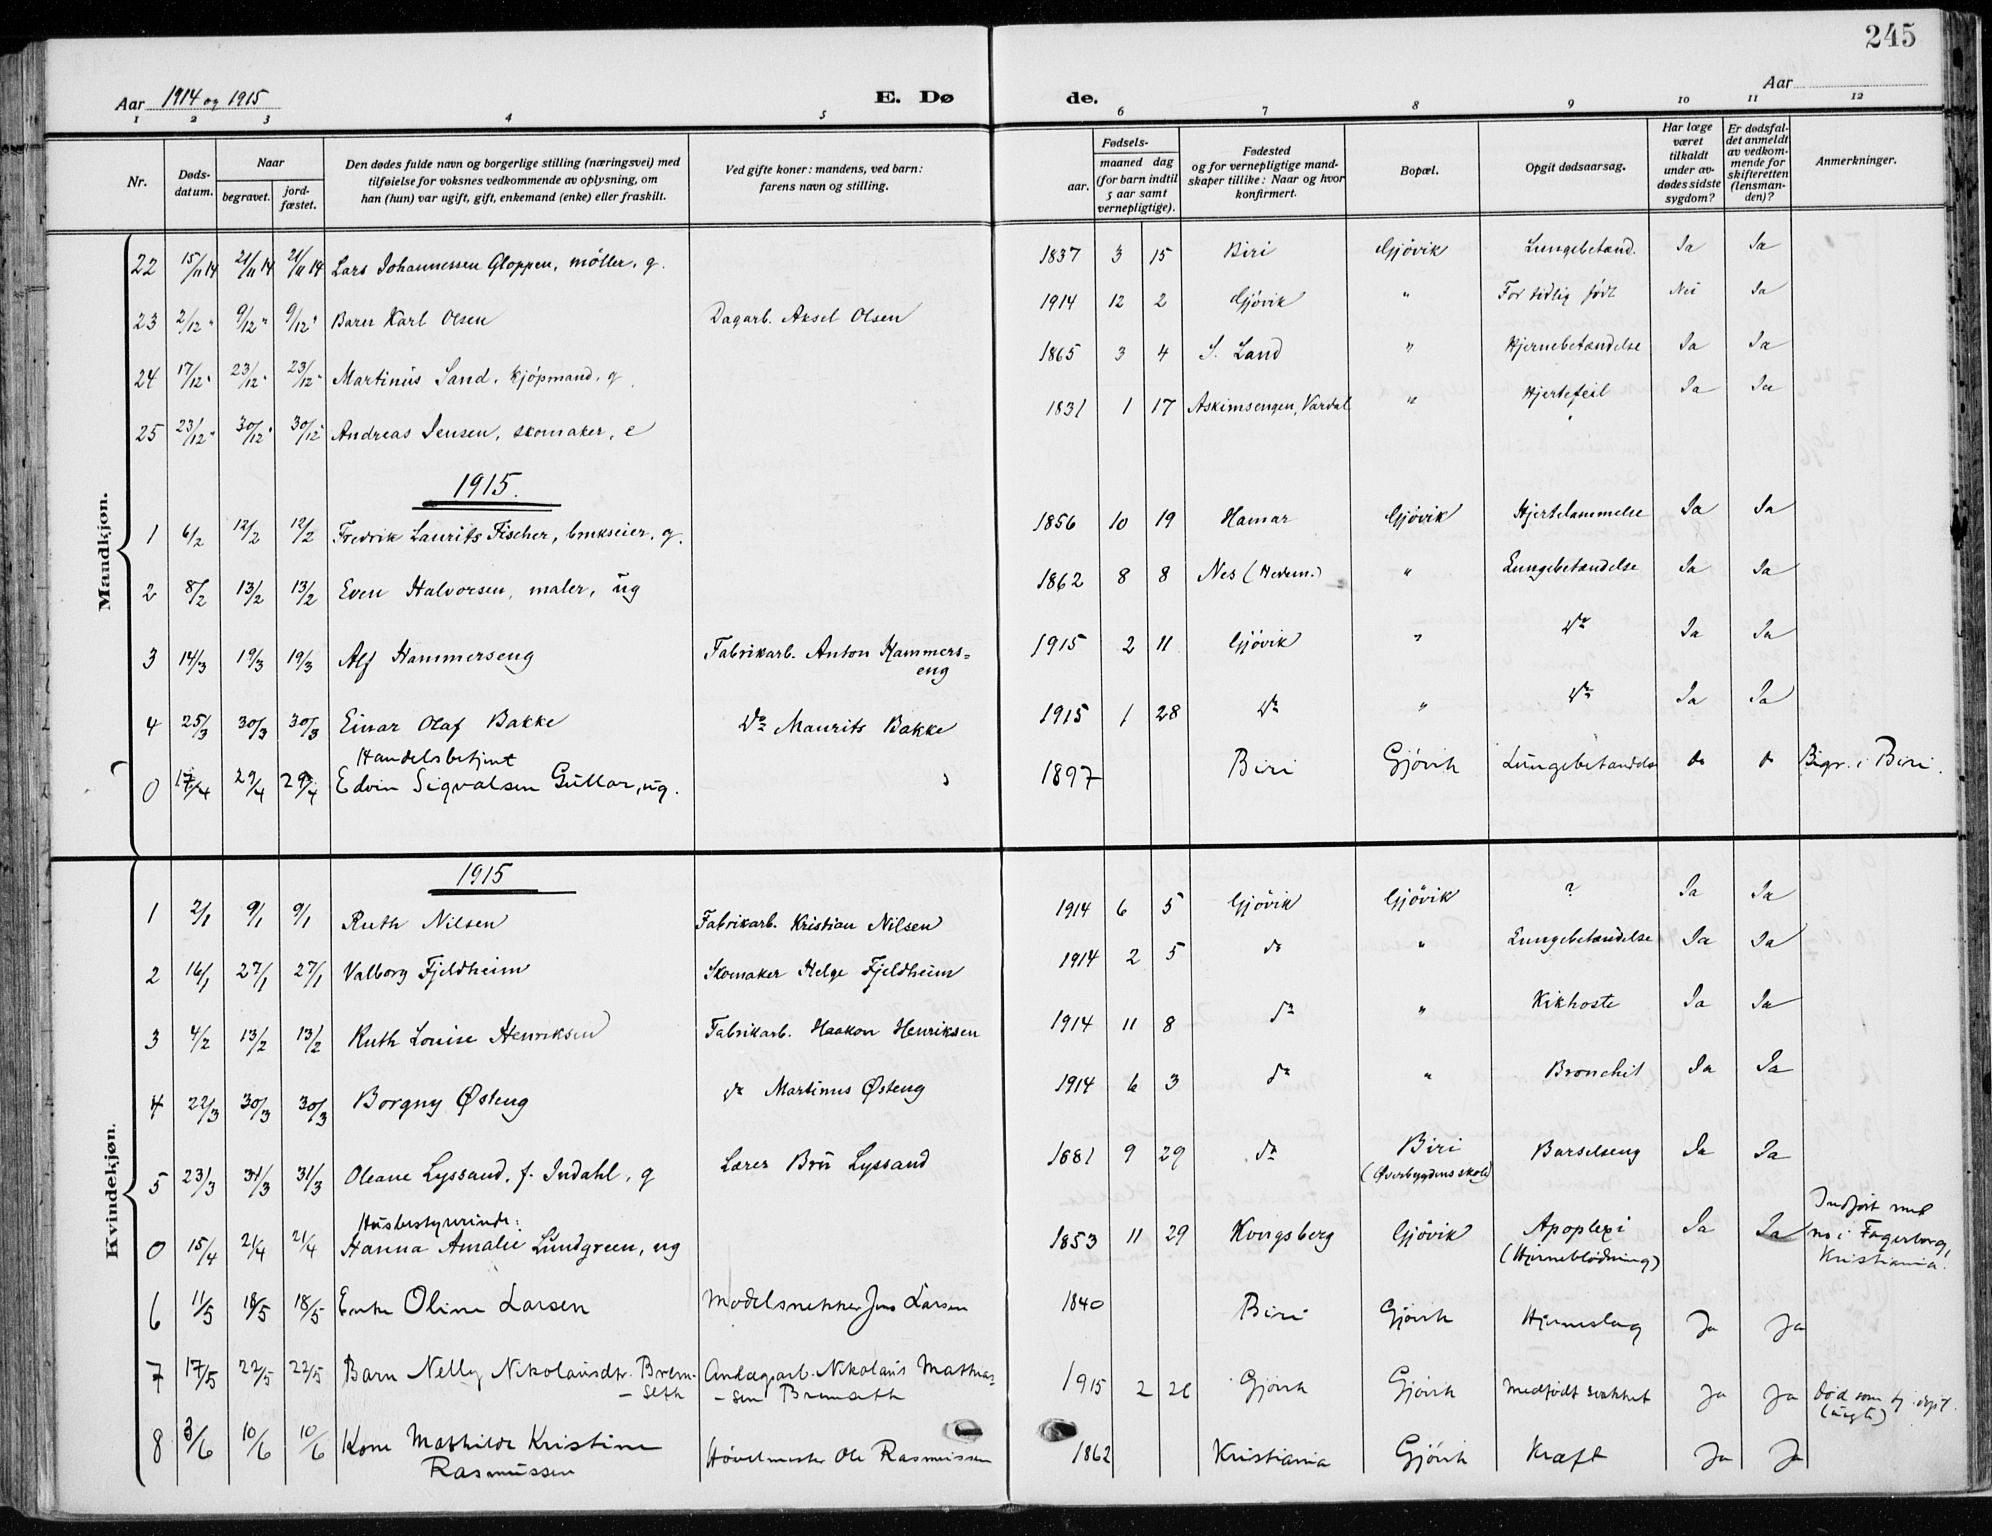 245
Aar 1914 og 1915 E. Dø de. Aar
1 2 3 4 5 6 7 8 9 10 11 12
Nr. Døds-datum. Naar begravet. jord-fæstet. Den dødes fulde navn og borgerlige stilling (næringsvei) med tilføielse for voksnes vedkommende av oplysning, om han (hun) var ugift, gift, enkemand (enke) eller fraskilt. Ved gifte koner: mandens, ved barn: farens navn og stilling. Fødsels- aar. maaned dag (for barn indtil 5 aar samt vernepligtige). Fødested og for vernepligtige mand-skaper tillike: Naar og hvor konfirmert. Bopæl. Opgit dødsaarsag. Har læge været tilkaldt under av-dødes sidste sygdom? Er dødsfal-det anmeldt av vedkom-mende for skifteretten (lensman-den)? Anmerkninger.
Mandkjøn.
22 15/11 14 21/11 14 21/11 14 Lars Johannessen Gloppen, møller, g. 1837 3 15 Biri Gjövik Lungebetænd. Ja Ja
23 2/12 " 9/12 " 9/12 " Barn Karl Olsen Dagarb. Aksel Olsen 1914 12 2 Gjövik " For tidlig född Nei Ja
24 17/12 " 23/12 " 23/12 " Martinus Sand, kjöpmand, g. 1865 3 4 S. Land " Hjernebetændelse Ja Ja
25 23/12 " 30/12 " 30/12 " Andreas Jensen, skomaker, e 1831 1 17 Askimsengen, Vardal " Hjertefeil Ja Ja
1915.
1 6/2 12/2 12/2 Fredrik Laurits Fischer, brukseier, g. 1856 10 19 Hamar Gjövik Hjertelammelse Ja Ja
2 8/2 13/2 13/2 Even Halvorsen, maler, ug 1862 8 8 Nes (Hedem.) " Lungebetændelse Ja Ja
3 14/3 19/3 19/3 Alf Hammerseng Fabrikarb. Anton Hammers=
eng 1915 2 11 Gjövik " Do Ja Ja
4 25/3 30/3 30/3 Einar Olaf Bakke Do Maurits Bakke 1915 1 28 Do " Do Ja Ja
Handelsbetjent
0 17/4 29/4 29/4 Edvin Sigvalsen Gullar, ug. 1897 Biri Gjövik Lungebetændelse do do Bigr. i Biri.
Kvindekjøn.
1915
1 2/1 9/1 9/1 Ruth Nilsen Fabrikarb. Kristian Nilsen 1914 6 5 Gjövik Gjövik ? Ja Ja
2 16/1 27/1 27/1 Valborg Fjeldheim Skomaker Helge Fjeldheim 1914 2 5 do " Lungebetændelse Ja Ja
3 4/2 13/2 13/2 Ruth Louise Henriksen Fabrikarb. Haakon Henriksen 1914 11 8 do " Kikhoste Ja Ja
4 22/3 30/3 30/3 Borgny Østeng do Martinus Østeng 1914 6 3 do " Bronchit Ja Ja
5 23/3 31/3 31/3 Oleane Lyssand, f. Indahl, g Lærer Bru Lyssand 1881 9 29 do Biri
(Øverbygdens skole) Barselseng Ja Ja
Husbestyrerinde:
0 15/4 21/4 21/4 Hanna Amalie Lundgreen, ug 1853 11 29 Kongsberg Gjövik Apoplexi
(Hjerneblödning) Ja Ja Indfört med
no i Fagerborg,
Kristiania.
6 11/5 18/5 18/5 Enke Oline Larsen Modelsnekker Jens Larsen 1840 Biri Gjövik Hjerneslag Ja Ja
7 17/5 22/5 22/5 Barn Nelly Nikolausdtr. Brem-
-seth Anlægsarb. Nikolaus Mathias-
-sen Bremseth 1915 2 26 Gjövik Gjövik Medfödt svakhet Ja Ja död som ej döpt.
(ægte)
8 3/6 10/6 10/6 Kone Mathilde Kristine
Rasmussen Hövelmester Ole Rasmussen 1862 Kristiania Gjövik Kræft Ja Ja